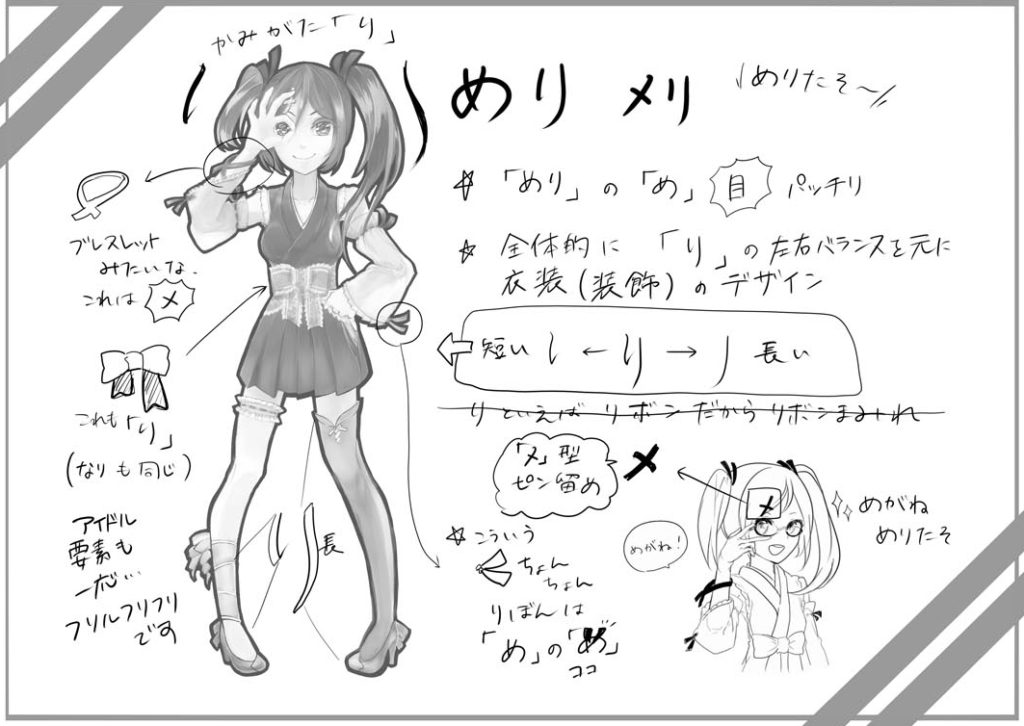 かみがた「り」
めり メリ
めりたそ〜
☆「めり」の「め」目 パッチリ
☆ 全体的に「り」の左右バランスを元に
衣装(装飾)のデザイン
短い ← り → 長い
りといえばリボンだからリボンまみれ
ブレスレット
みたいな、
これは メ
これも「り」
(なりも同じ)
アイドル
要素も
一応…
フリルフリフリ
です
り
長
「メ」型
ピン留め
メ
メ
めがね!
めがね
めりたそ
☆ こういう
ちょん
ちょん
りぼんは
「め」の「め」
ココ